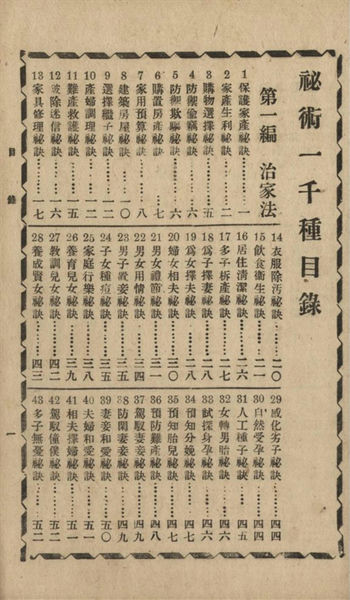 祕術一千種目錄
第一編 治家法
1 保護家產祕訣………一
2 家產生利祕訣………二
3 購物選擇祕訣………五
4 防禦偷竊祕訣………六
5 防禦欺騙祕訣………六
6 購置房產祕訣………七
7 家用預算祕訣………八
8 建築房屋祕訣………一〇
9 選擇繼子祕訣………一二
10 產婦調理祕訣………一二
11 難產救護祕訣………一五
12 破除迷信祕訣………一六
13 家具修理祕訣………一七
14 衣服除汚祕訣………二〇
15 飲食衛生祕訣………二一
16 居住清潔祕訣………二六
17 多子析產祕訣………二七
18 爲子擇妻祕訣………二八
19 爲女擇夫祕訣………二八
20 婦女相夫祕訣………三〇
21 男女禮節祕訣………三一
22 男女用情祕訣………三四
23 男子敎妾祕訣………三五
24 子女種痘祕訣………三五
25 家庭行樂祕訣………三八
26 養育兒女祕訣………三九
27 敎訓兒女祕訣………四二
28 養成賢女祕訣………四三
29 感化劣子祕訣………四四
30 自然受孕祕訣………四四
31 人工種子祕訣………四五
32 女轉男胎祕訣………四六
33 試探身孕祕訣………四六
34 預知分娩祕訣………四七
35 預知胎兒祕訣………四七
36 預防難產祕訣………四八
37 駕馭妻妾祕訣………四九
38 防閑妻妾祕訣………四九
39 妻妾和愛祕訣………五〇
40 夫婦和愛祕訣………五一
41 相夫擇婦祕訣………五一
42 駕馭僮僕祕訣………五二
43 多子無憂祕訣………五二
目錄
一